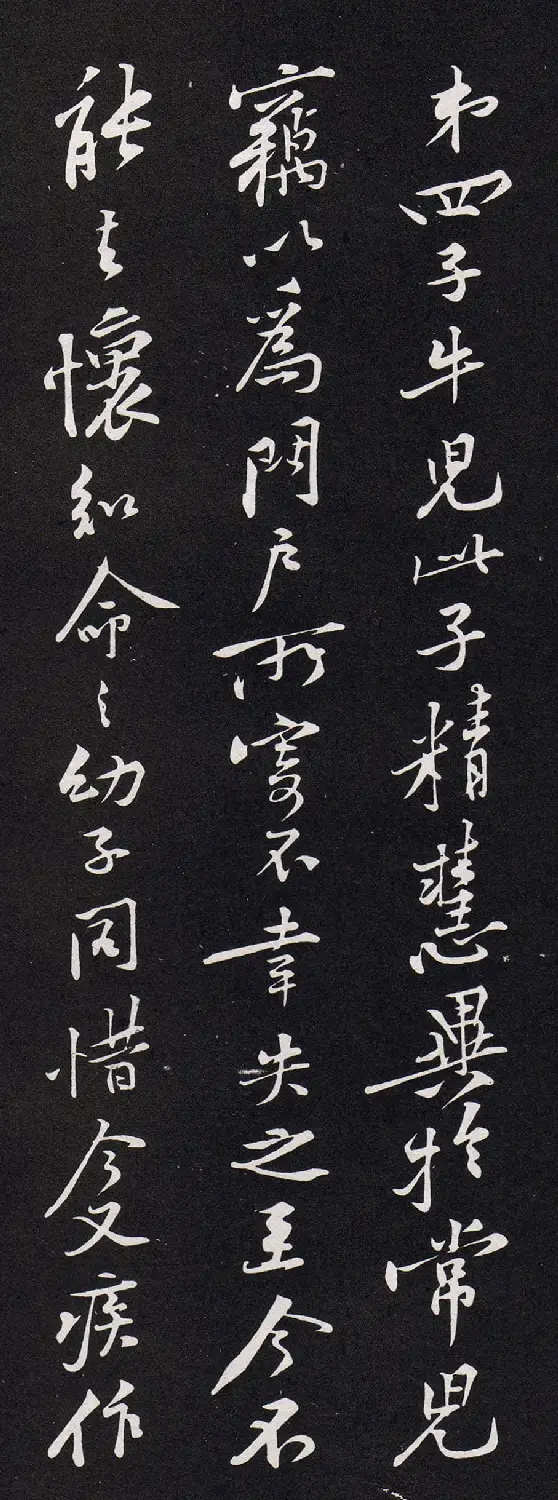 第四子牛兒此子精慧異於常兒
竊以為門戶所寄不幸失之至今不
能去懷知命之幼子同惜今又疾作